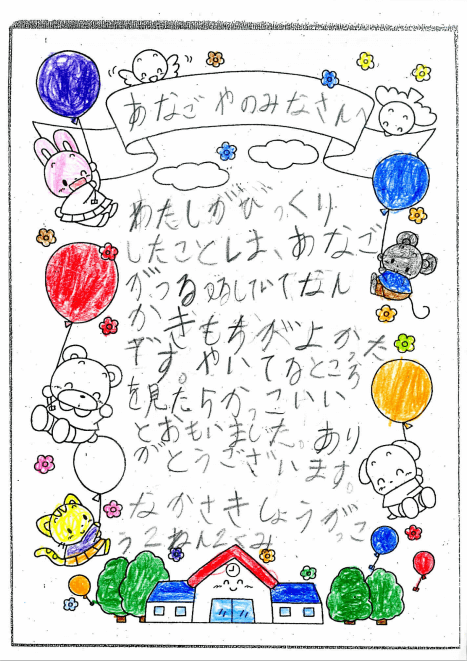 あなごやのみなさんへ
わたしがびっくり
したことしは、あなご
がつるつるしていてなん
かきもちがよかった
です。やいてるところ
を見たらかっこいい
とおもいました。あり
がとうございます。
なかさきしょうがっこ
う2ねん2くみ